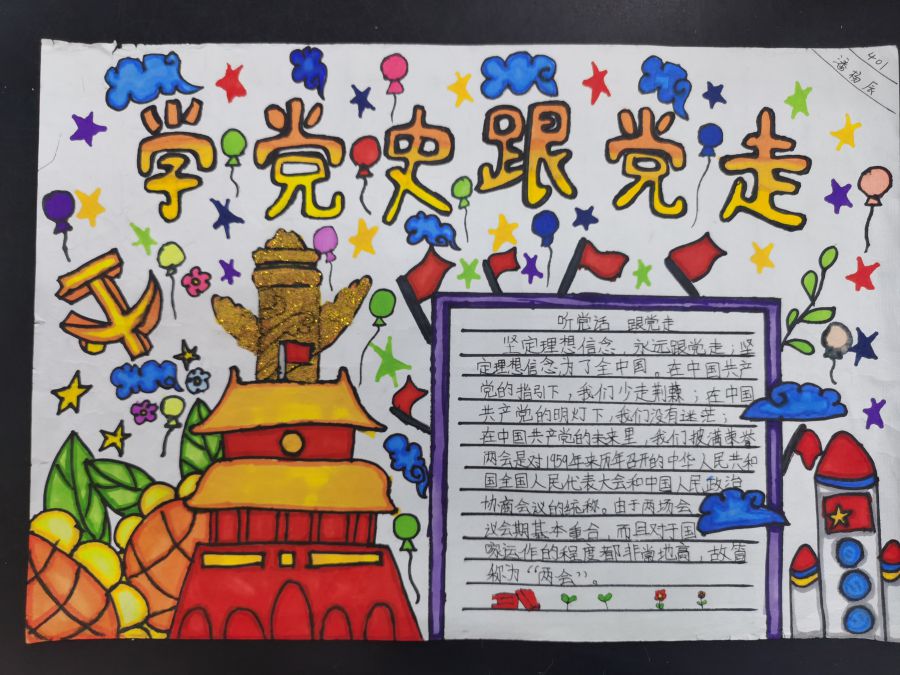 学党史跟党走
401
潘杨辰
听党话 跟党走
坚定理想信念，永远跟党走；坚
定理想信念，为了全中国。在中国共产
党的指引下，我们少走荆棘；在中国
共产党的明灯下，我们没有迷茫；
在中国共产党的未来里，我们披满荣誉
两会是对1959年来历年召开的中华人民共和
国全国人民代表大会和中国人民政治
协商会议的统称。由于两场会
议会期基本重合 而且对于国
家运作的程度都非常地高，故简
称为“两会”。